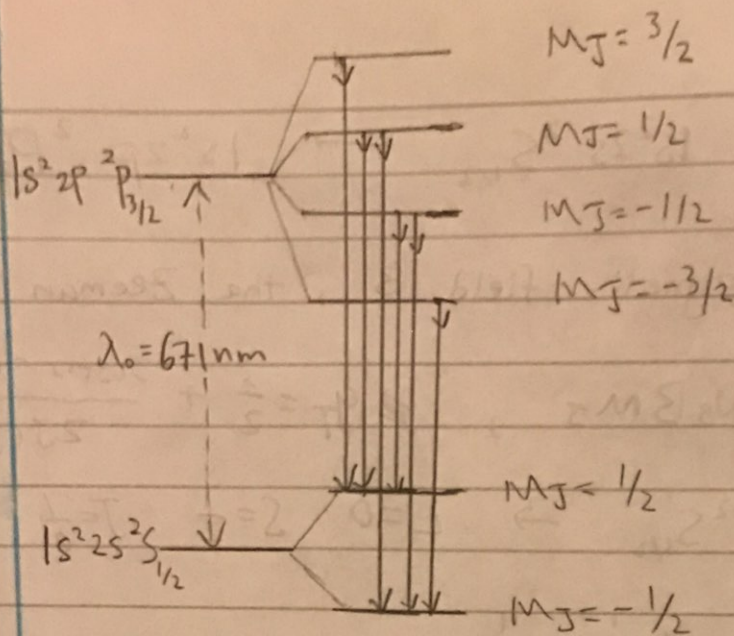 MJ = 3/2
MJ = 1/2
1s² 2p ²P3/2
MJ = -1/2
MJ = -3/2
λ₀ = 671 nm
MJ = 1/2
1s² 2s ²S1/2
MJ = -1/2